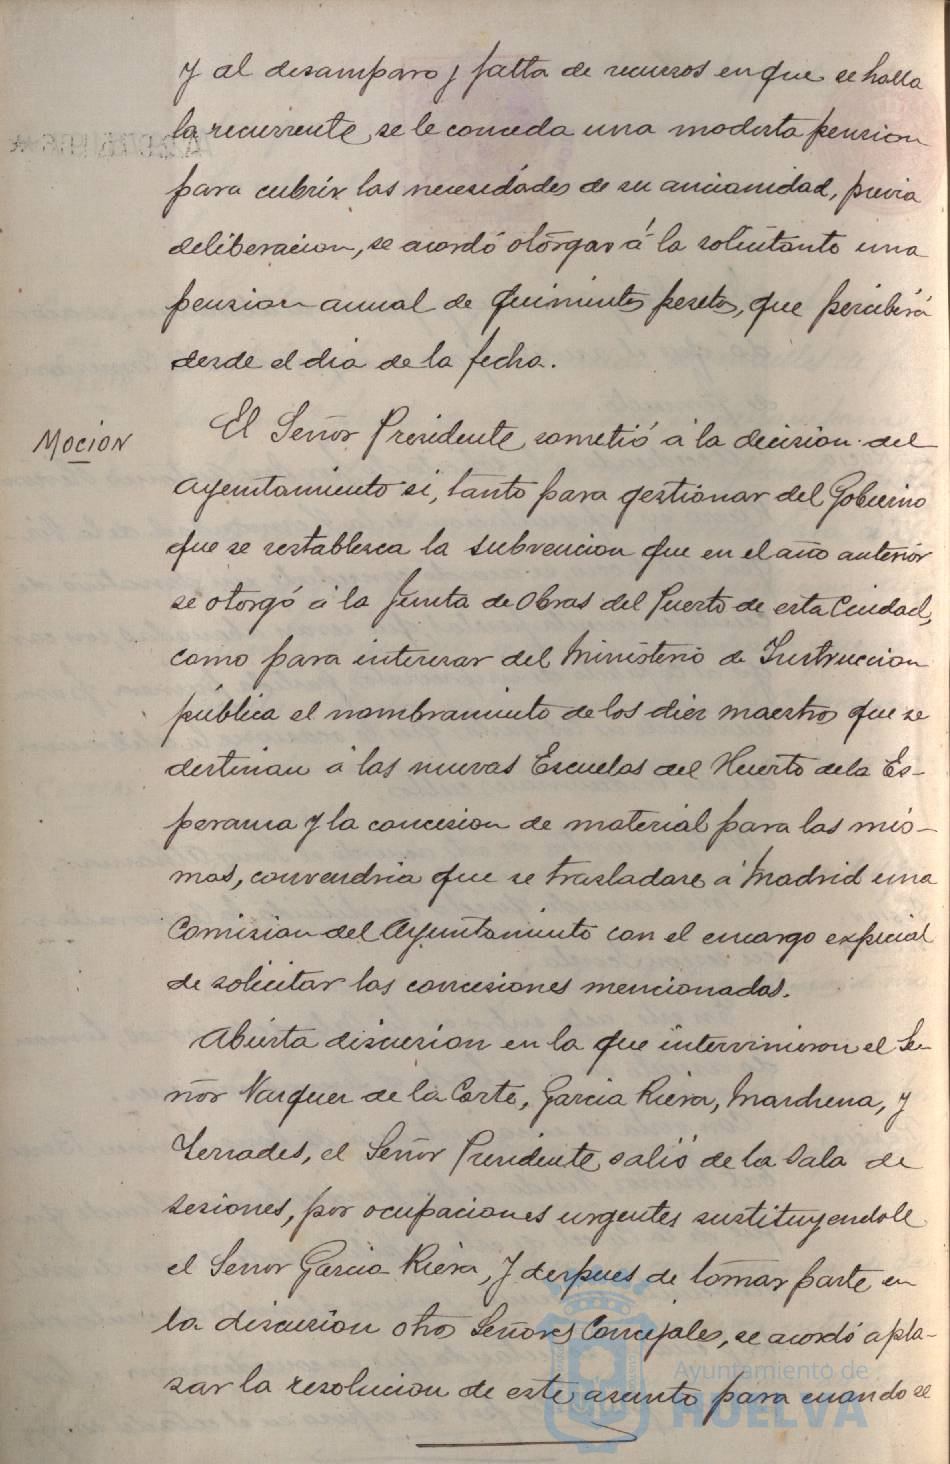 y al desamparo y falta de recursos en que se halla
la recurrente, se le conceda una modesta pension
para cubrir las necesidades de su ancianidad, previa
deliberacion, se acordó otorgar á la solicitante una
pension anual de quinientas pesetas, que percibirá
desde el dia de la fecha.
Mocion
El Señor Presidente sometió á la decision del
Ayuntamiento si, tanto para gestionar del Gobierno
que se restablesca la subvencion que en el año anterior
se otorgó á la Junta de Obras del Puerto de esta Ciudad,
como para interesar del Ministerio de Instruccion
pública el nombramiento de los diez maestros que se
destinan á las nuevas Escuelas del Huerto de la Es-
peranza y la concesion de material para las mis-
mas, convendria que se trasladase á Madrid una
Comision del Ayuntamiento con el encargo especial
de solicitar las concesiones mencionadas.
Abierta discusion en la que intervinieron el Se-
ñor Vazquez de la Corte, Garcia Riera, Marchena, y
Terrades, el Señor Presidente salió de la Sala de
sesiones, por ocupaciones urgentes sustituyendole
el Señor Garcia Riera, y despues de tomar parte en
la discusion otros Señores Concejales, se acordó apla-
zar la resolucion de este asunto para cuando se
Ayuntamiento de
HUELVA